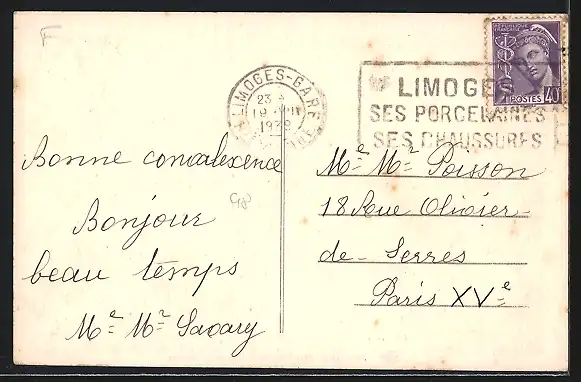 F
LIMOGES-GARE
23
19
1939
LIMOGES
SES PORCELAINES
SES CHAUSSURES
REPUBLIQUE FRANÇAISE
POSTES 40
Bonne convalexence
Bonjour
beau temps
Me = Mr Savary
Me = Mr Poisson
18 Rue Olivier
de-Serres
Paris XVe